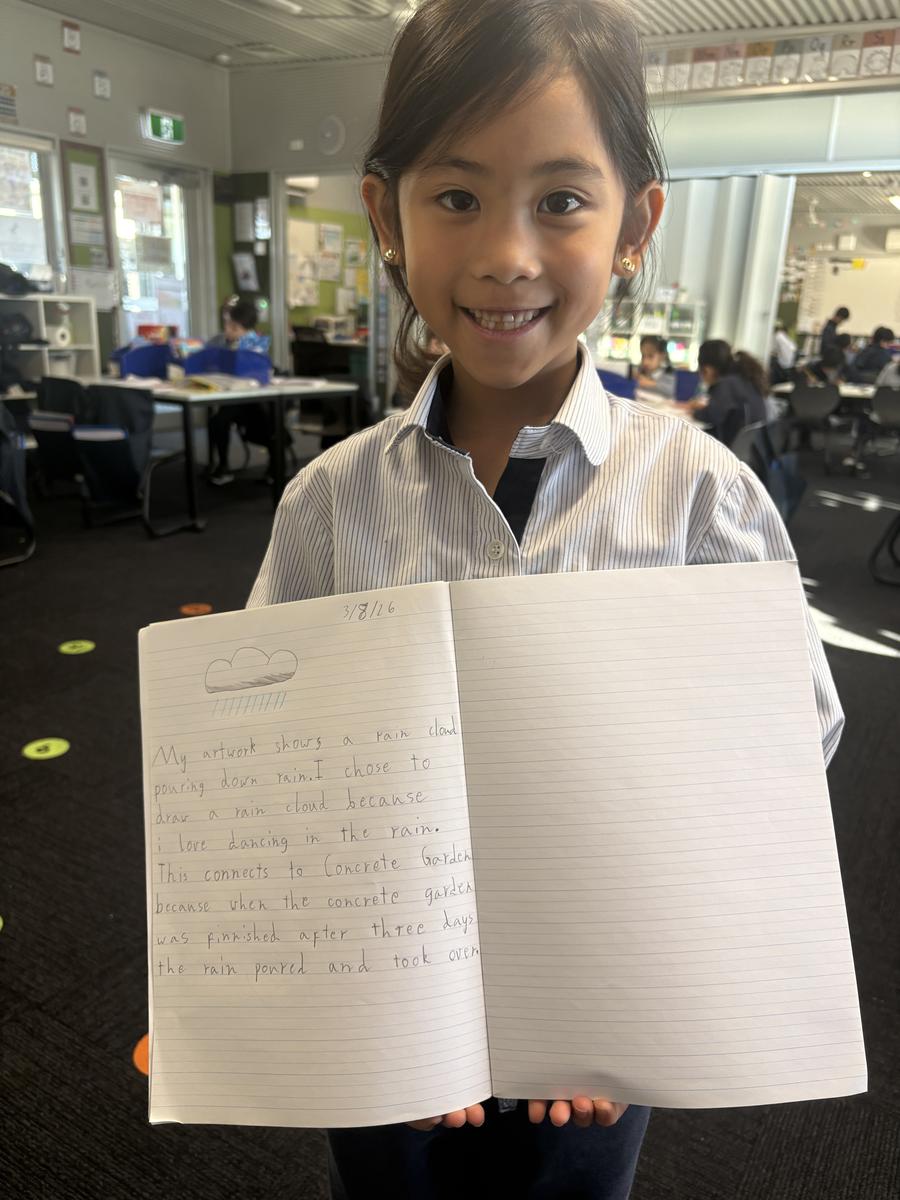 3/8/26
My artwork shows a rain cloud
pouring down rain.I chose to
draw a rain cloud because
i love dancing in the rain.
This connects to Concrete Garden
because when the concrete garden
was finnished after three days
the rain poured and took over.